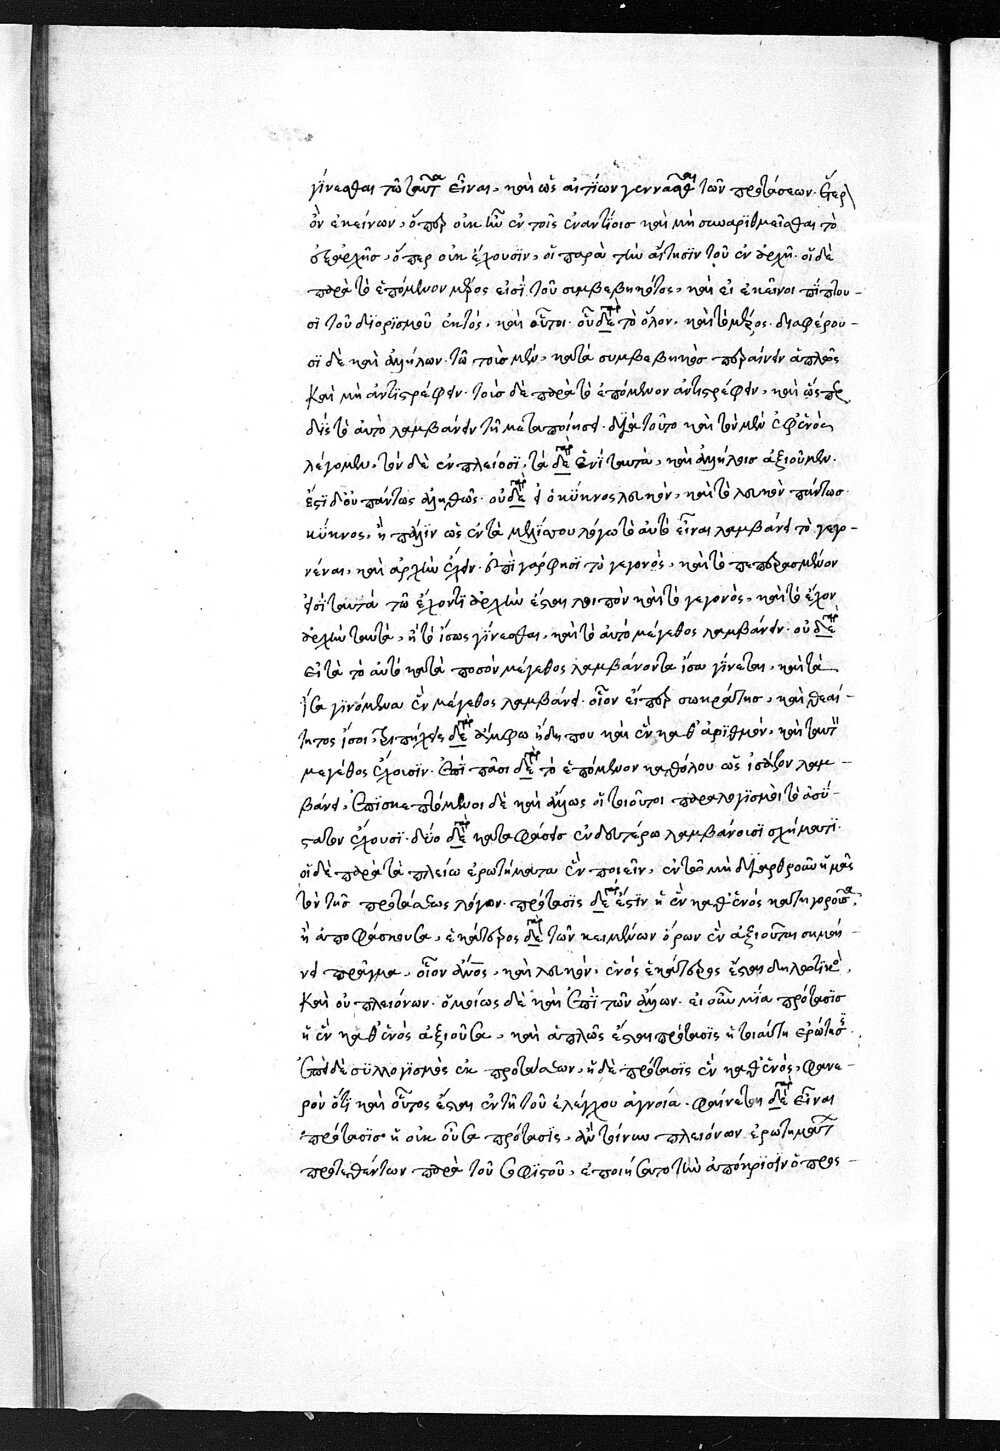 γίνεσθαι τῶ ταὐτα εἶναι, καὶ ὡς αἰτίων γεννᾶσθαι τῶν προτάσεων. ἕτερ
ὂν ἐκείνων, ὅπερ οὐκ ἦν ἐν τοῖς ἐναντίοις καὶ μὴ συναριθμεῖσθαι τὸ
ἐξαρχῆς, ὅπερ οὐκ ἔχουσϊν, οἱ παρὰ τὴν αἴτησϊν τοῦ ἐν ἀρχῆ. οἱ δὲ
παρὰ τὸ ἑπόμενον μέρος εἰσὶ τοῦ συμβεβηκότος, καὶ εἰ ἐκεῖνοι πίπτου-
σι τοῦ διορισμοῦ ἐκτὸς, καὶ οὗτοι. οὗ δὲ γὰρ τὸ ὅλον, καὶ τὸ μέρος. διαφέρου-
σϊ δὲ καὶ ἀλλήλων. τῶ τοῖς μὲν, κατὰ συμβεβηκὸς περαίνειν ἁπλῶς
καὶ μὴ ἀντιστρέφειν. τοῖς δὲ παρὰ τὸ ἑπόμενον ἀντιστρέφειν, καὶ ὥσπερ
δὶς τὸ αὐτὸ λαμβάνειν τῆ μεταποιήσει. διὰ τοῦτο καὶ τὸν μὲν ἐφ' ἑνὸς
λέγομεν, τὸν δὲ ἐν πλείοσϊ, τὰ δὲ γὰρ ἑνὶ ταυτὰ, καὶ ἀλλήλοις ἀξιοῦμεν.
ἐστὶ δ' οὐ πάντως ἀληθῶς. οὐδὲ γὰρ εἰ ὁ κύκνος λευκὸν, καὶ τὸ λευκὸν πάντως
κύκνος, ἢ πάλϊν ὡς ἐν τῶ μελίσσου λόγω τὸ αὐτὸ εἶναι λαμβάνει τὸ γεγο-
νέναι, καὶ ἀρχὴν ἔχειν. ἐπεὶ γάρ φησι τὸ γεγονὸς, καὶ τὸ πεπερασμένον
εἰσὶ ταυτὰ τῶ ἔχοντι ἀρχὴν ἔσται λοιπὸν καὶ τὸ γεγονὸς, καὶ τὸ ἔχον
ἀρχὴν ταυτὰ, ἢ τὸ ἴσως γίνεσθαι, καὶ τὸ αὐτὸ μέγεθος λαμβάνειν. οὐδὲ γὰρ
εἰ τὰ τὸ αὐτὸ κατὰ ποσὸν μέγεθος λαμβάνοντα ἴσα γίνεται, καὶ τὰ
ἴσα γινόμενα ἓν μέγεθος λαμβάνει. οἷον εἴπερ σωκράτης, καὶ θεαί-
τητος ἴσοι, τριπήχεις δὲ γὰρ ἄμφω ἤδη που καὶ ἓν καθ' ἀρϊθμὸν, καὶ ταυτὸ
μέγεθος ἔχουσϊν. ἐπὶ πᾶσι δὲ γὰρ τὸ ἑπόμενον καθόλου ὡς ἰσάζον λαμ-
βάνει, ἐπισκεπτόμενοι δὲ καὶ ἄλλως οἱ τοιοῦτοι παραλογισμοὶ τὸ ἀσύ-
στατον ἔχουσϊ. δύο δὲ γὰρ καταφάσεις ἐν δευτέρω λαμβάνουσϊ σχήματι.
οἱ δὲ παρὰ τὰ πλείω ἐρωτήματα ἓν ποιεῖν, ἐν τῶ μὴ διαρθροῦν ἡμᾶς
τὸν τῆς προτάσεως λόγον. πρότασις δὲ γὰρ ἐστὶν ἢ ἓν καθ' ἑνὸς κατηγοροῦσα,
ἢ ἀποφάσκουσα, ἑκάτερος δὲ γὰρ τῶν κειμένων ὅρων ἓν ἀξιοῦται σημαί-
νει πρᾶγμα, οἷον ἄνος, καὶ λευκὸν, ἑνὸς ἑκάτερος ἔσται δηλωτϊκὸς,
καὶ οὐ πλειόνων. ὁμοίως δὲ καὶ ἐπὶ τῶν ἄλλων. εἰ οὖν μία πρότασϊς
ἡ ἓν καθ' ἑνὸς ἀξιοῦσα, καὶ ἁπλῶς ἔσται πρότασϊς ἡ τοιαύτη ἐρώτησις.
ἐπεὶ δὲ συλλογισμὸς ἐκ προτάσεων, ἡ δὲ πρότασϊς ἓν καθ' ἑνὸς, φανε-
ρὸν ὅτι καὶ οὗτος ἔσται ἐν τῆ τοῦ ἐλέγχου ἀγνοία. φαίνεται δὲ γὰρ εἶναι
πρότασϊς ἡ οὐκ οὖσα πρότασϊς, ἂν τοίνυν πλειόνων ἐρωτημάτ
προτεθέντων παρὰ τοῦ σοφιστοῦ, ἐποιήσατο τὴν ἀπόκρισϊν ὁ προς-